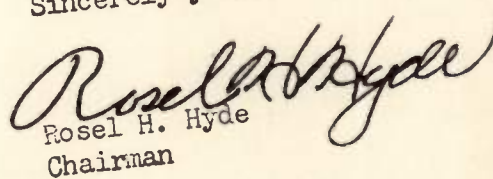 Sincerely,
Rosel H. Hyde
Rosel H. Hyde
Chairman